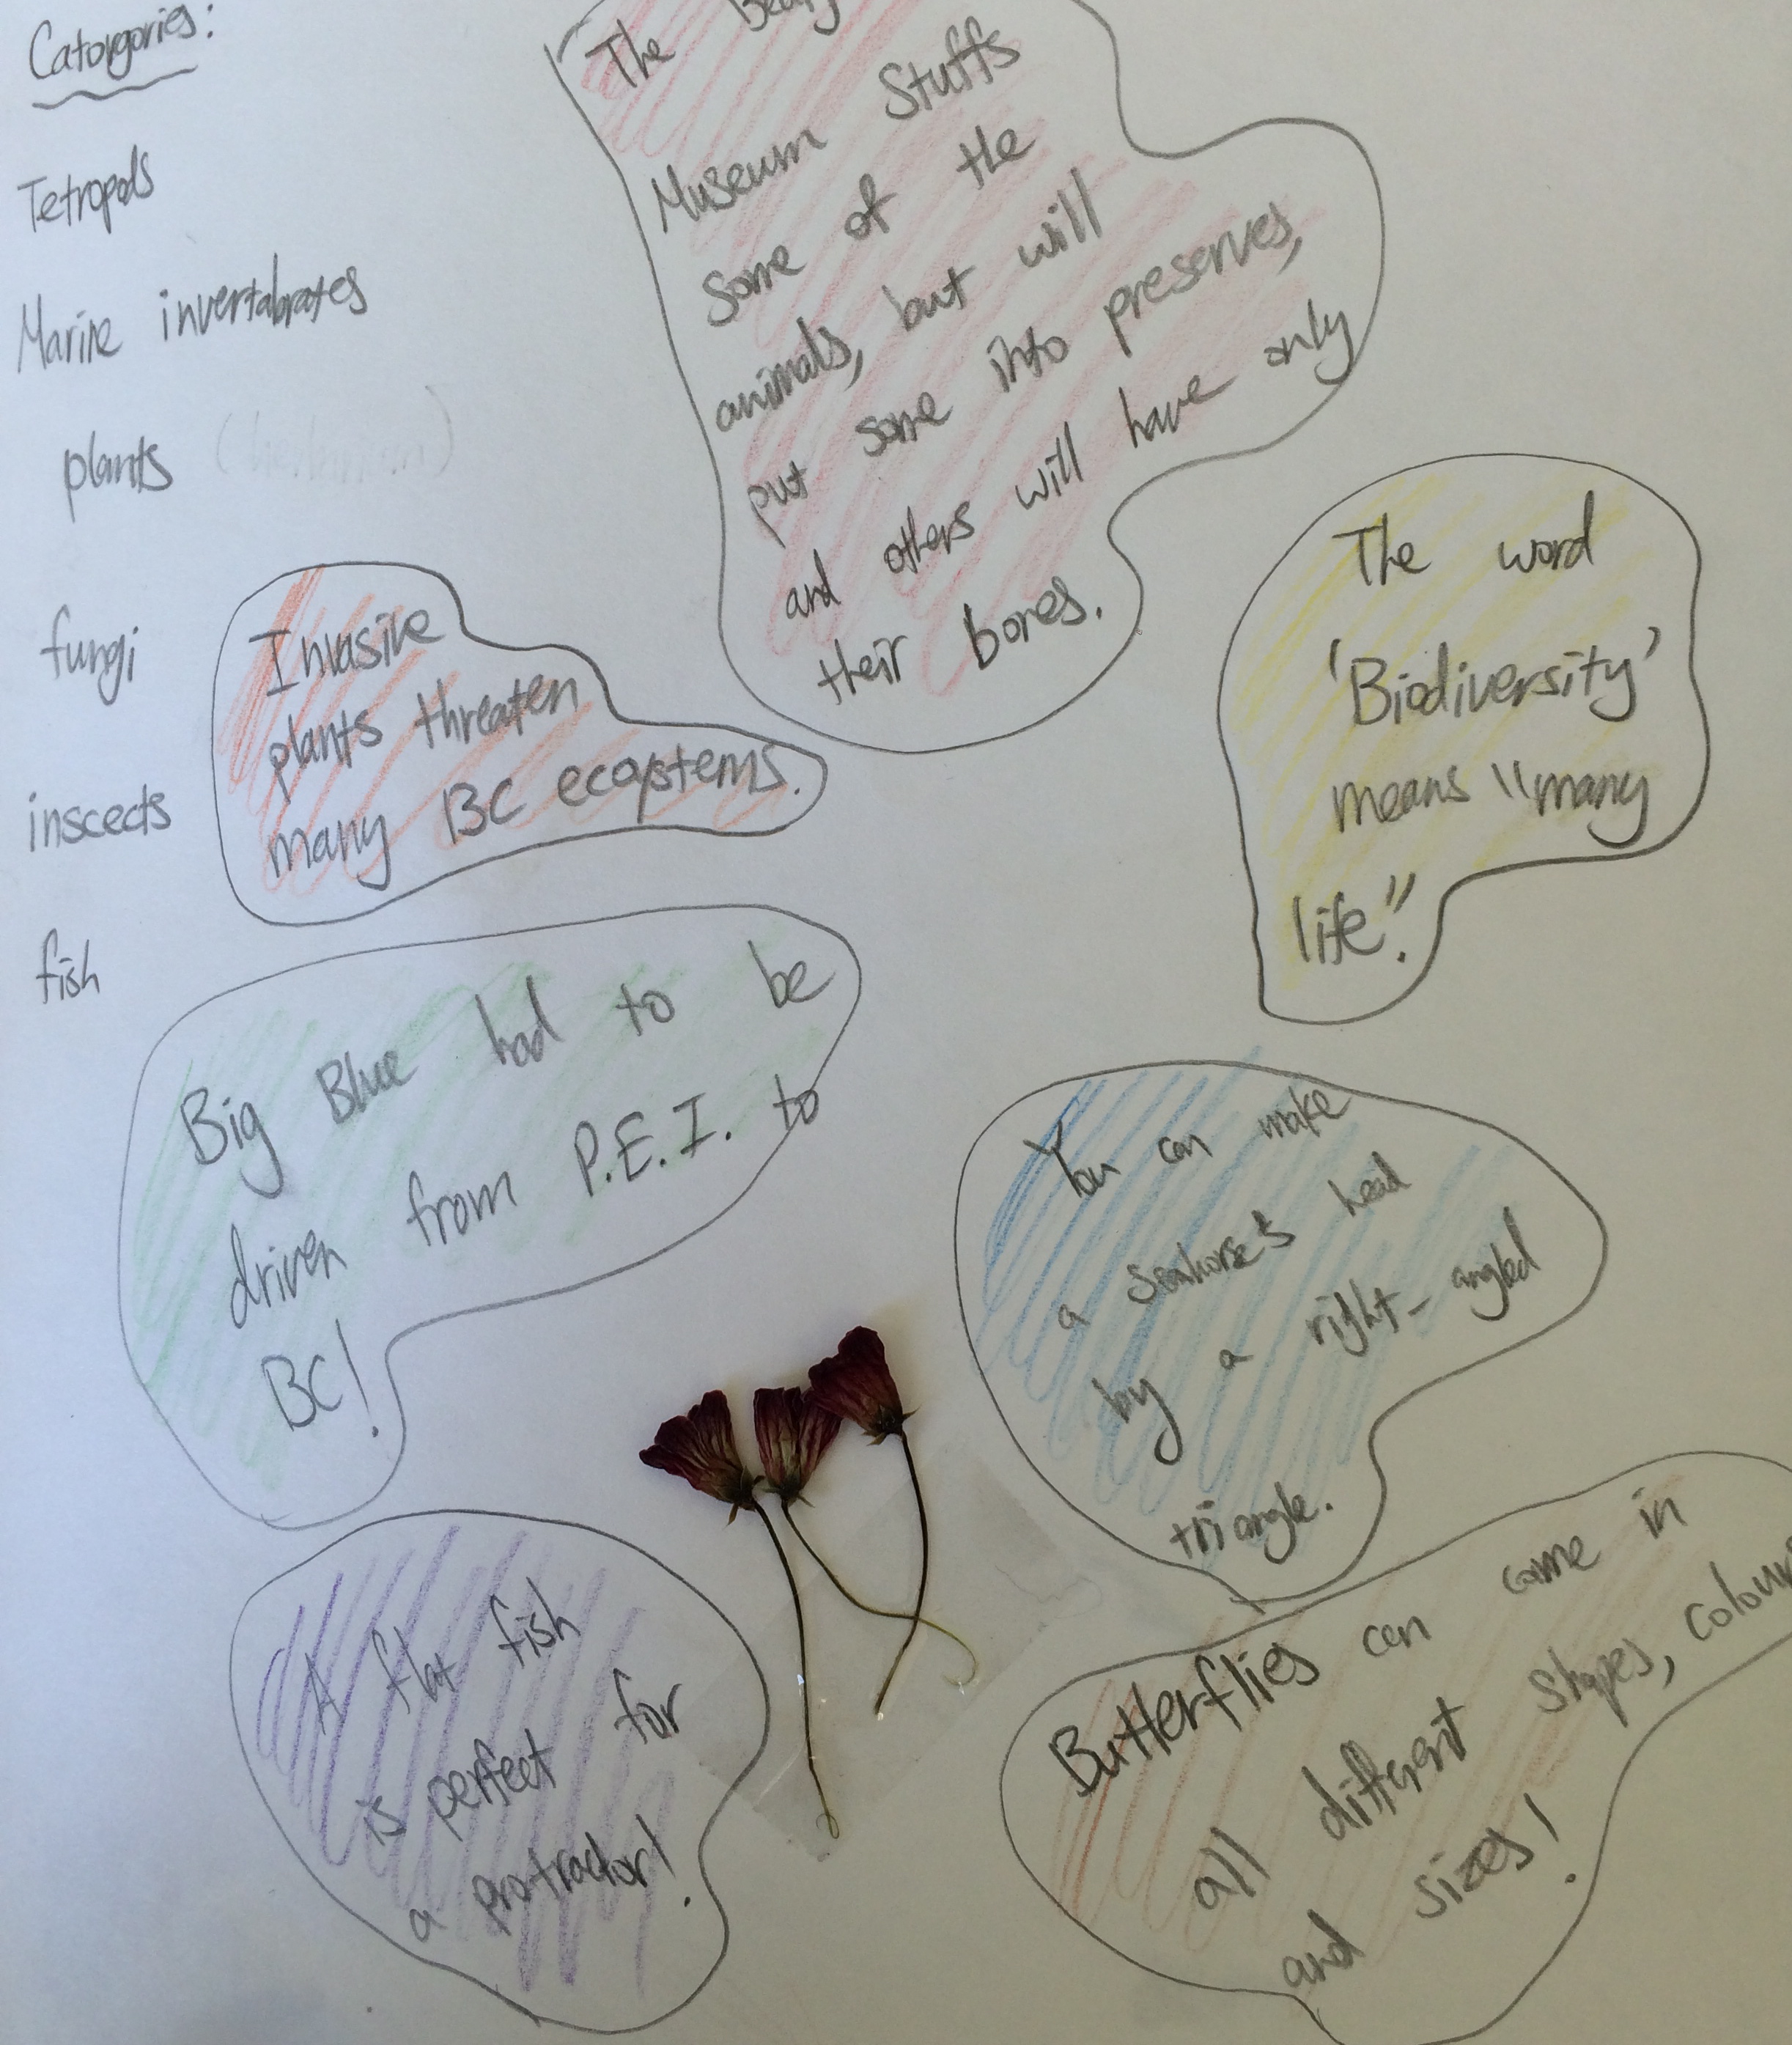 Catorgories:
Tetropods
Marine invertabrates
plants (herbarium)
fungi
inscects
fish
The Beaty
Museum Stuffs
some of the
animals, but will
put some into preserves,
and others will have only
their bones.
Invasive
plants threaten
many BC ecosystems.
The word
'Biodiversity'
means "many
life".
Big Blue had to be
driven from P.E.I. to
BC!
You can make
a seahorse's head
by a right-angled
triangle.
A flat fish
is perfect for
a protractor!
Butterflies can come in
all different shapes, colours
and sizes!